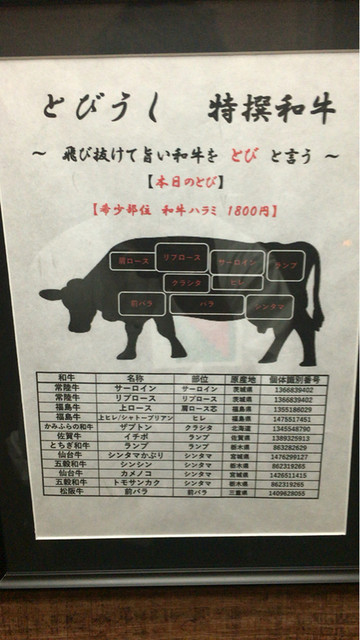 とびうし 特撰和牛
～ 飛び抜けて旨い和牛を とび と言う ～
【本日のとび】
【希少部位 和牛ハラミ 1800円】
肩ロース リブロース サーロイン ランプ
クラシタ ヒレ
前バラ バラ シンタマ
和牛 名称 部位 原産地 個体識別番号
常陸牛 サーロイン サーロイン 茨城県 1366839402
常陸牛 リブロース リブロース 茨城県 1366839402
福島牛 上ロース 肩ロース芯 福島県 1355186029
福島牛 上ヒレ/シャトーブリアン ヒレ 福島県 1475517451
かみふらの和牛 ザブトン クラシタ 北海道 1345548790
佐賀牛 イチボ ランプ 佐賀県 1389325913
とちぎ和牛 ランプ ランプ 栃木県 863282629
仙台牛 シンタマかぶり シンタマ 宮城県 1476299127
五穀和牛 シンシン シンタマ 栃木県 862319265
仙台牛 カメノコ シンタマ 宮城県 1426511415
五穀和牛 トモサンカク シンタマ 栃木県 862319265
松阪牛 前バラ 前バラ 三重県 1409629055